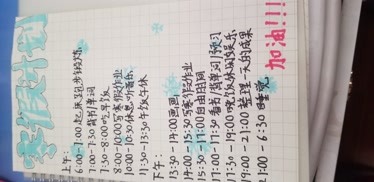 寒假计划
上午:
6:00-7:00 起床跑步锻炼
7:00-7:30 背书/单词
7:30-8:00 吃早饭
8:00-10:00 写寒假作业
10:00-10:30 休息听音乐
11:30-13:30 午饭午休
下午:
13:30-14:00 画画
14:00-15:30 写寒假作业
15:30-17:00 自由时间
17:00-17:30 看书/背单词/预习
17:30-19:00 晚饭休闲娱乐
19:00-21:00 整理一天的成果
21:00-6:30 睡觉
加油!!!!